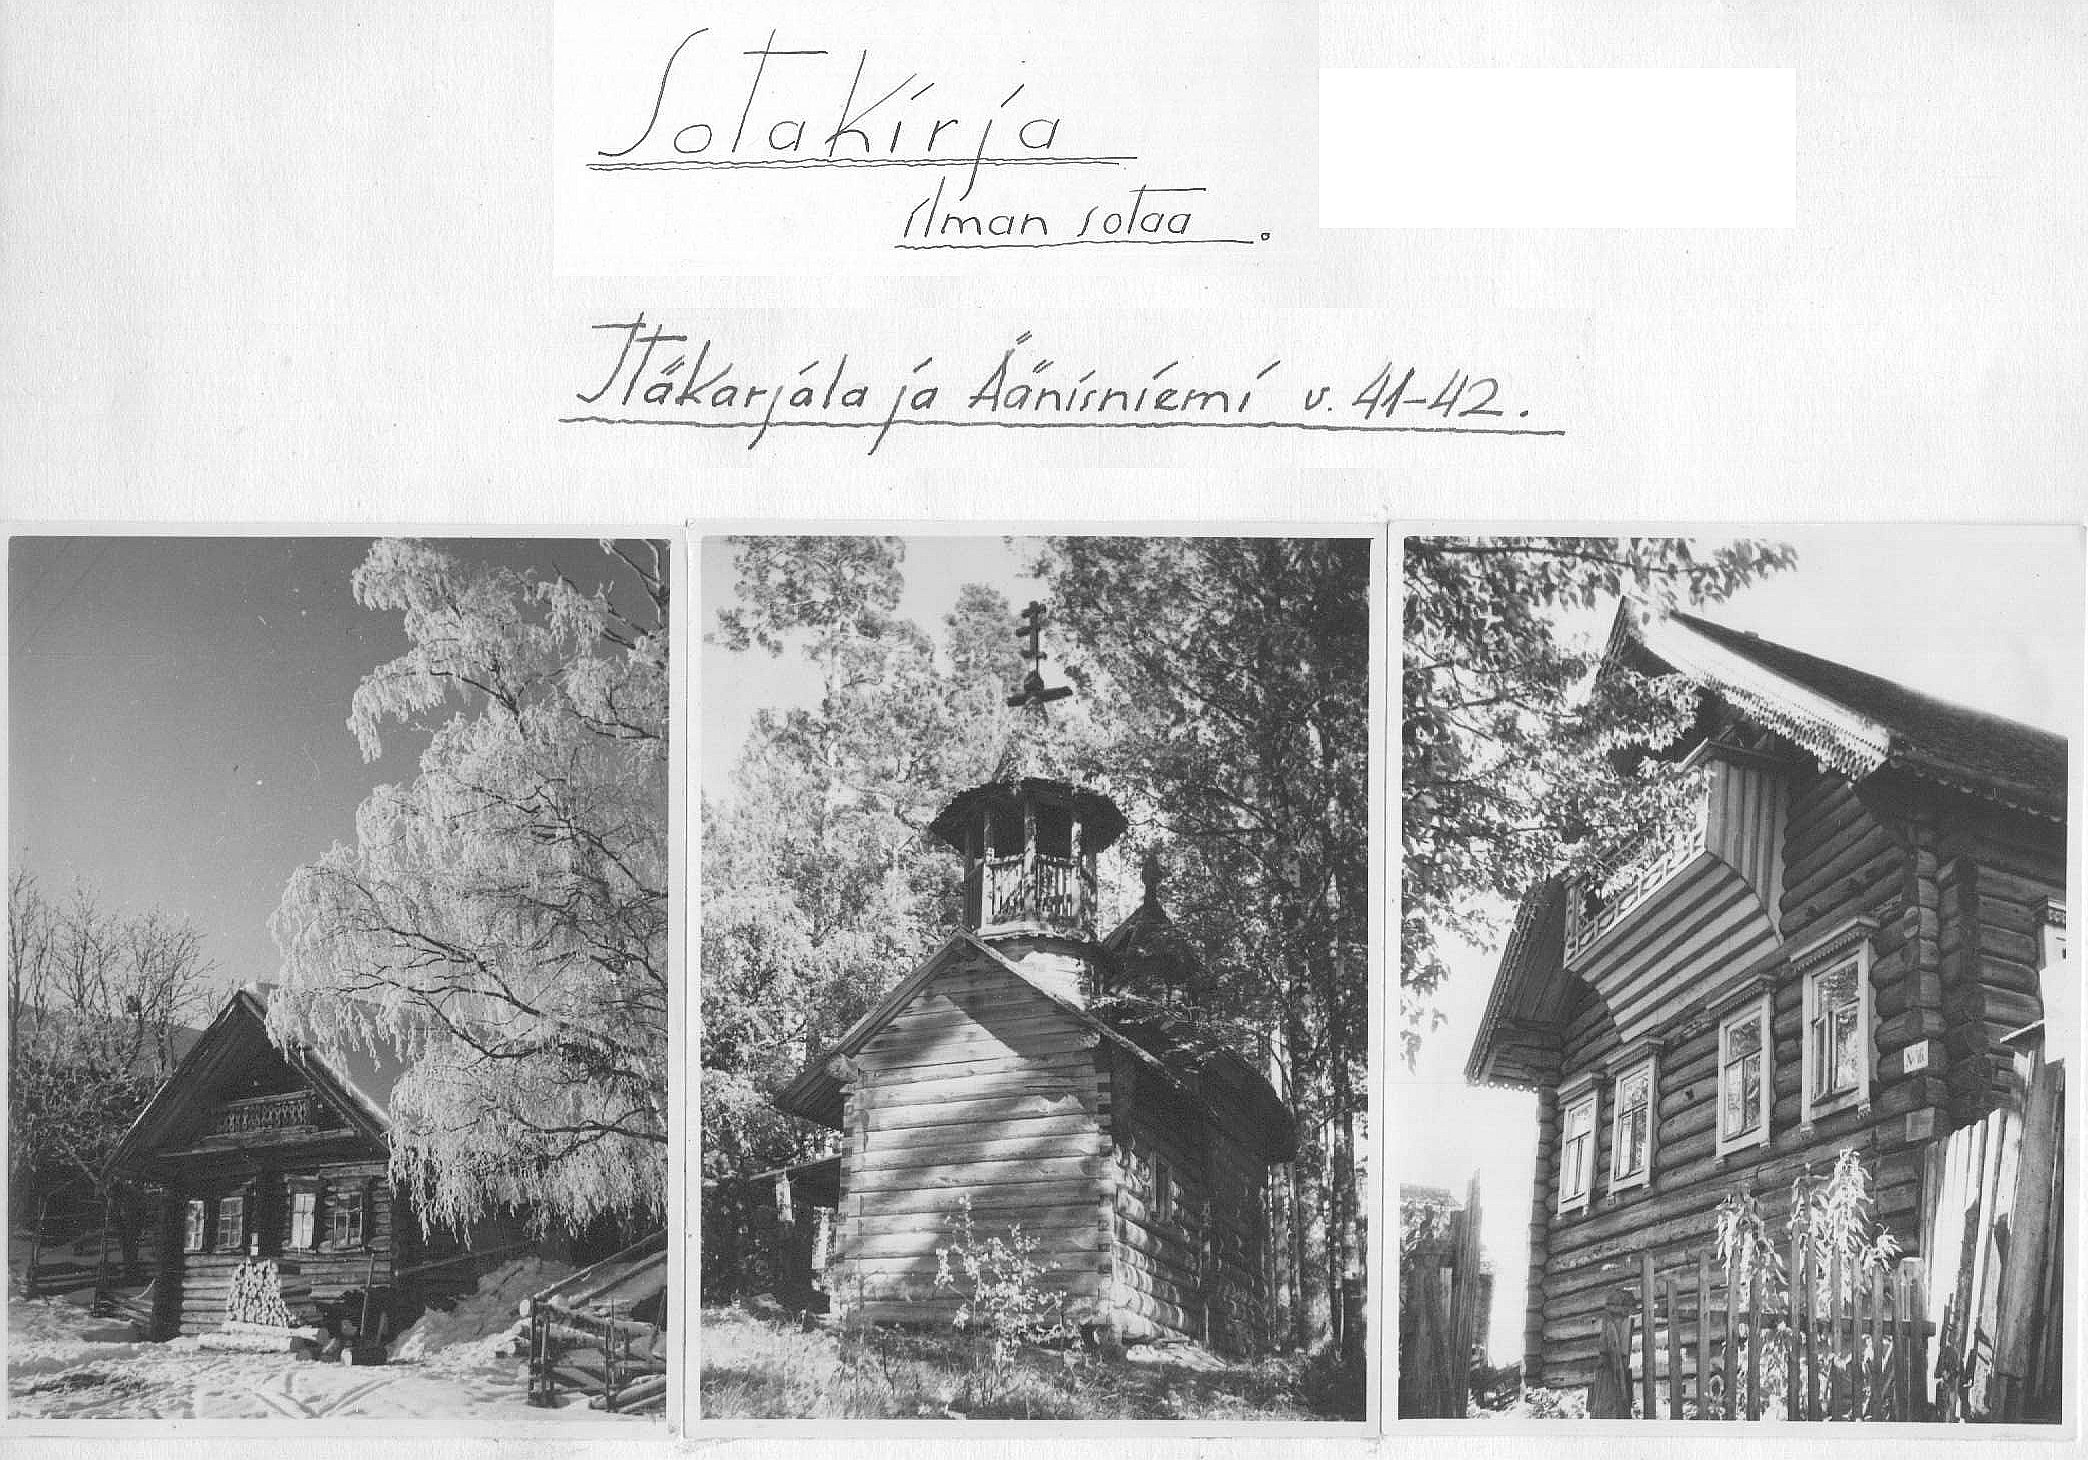 Sotakirja
ilman sotaa.
Itäkarjala ja Äänisniemi v. 41-42.